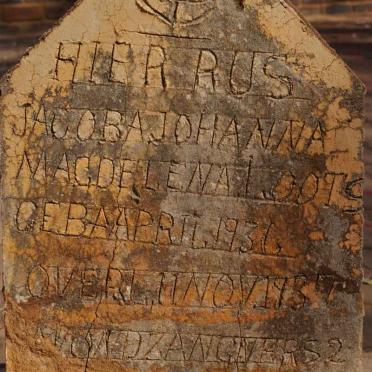 HIER RUS
JACOBA JOHANNA
MAGDELENA LOOTS
GEB 4 APRIL 1936
OVERL 11 NOV 1937
GEZANG VERS 2